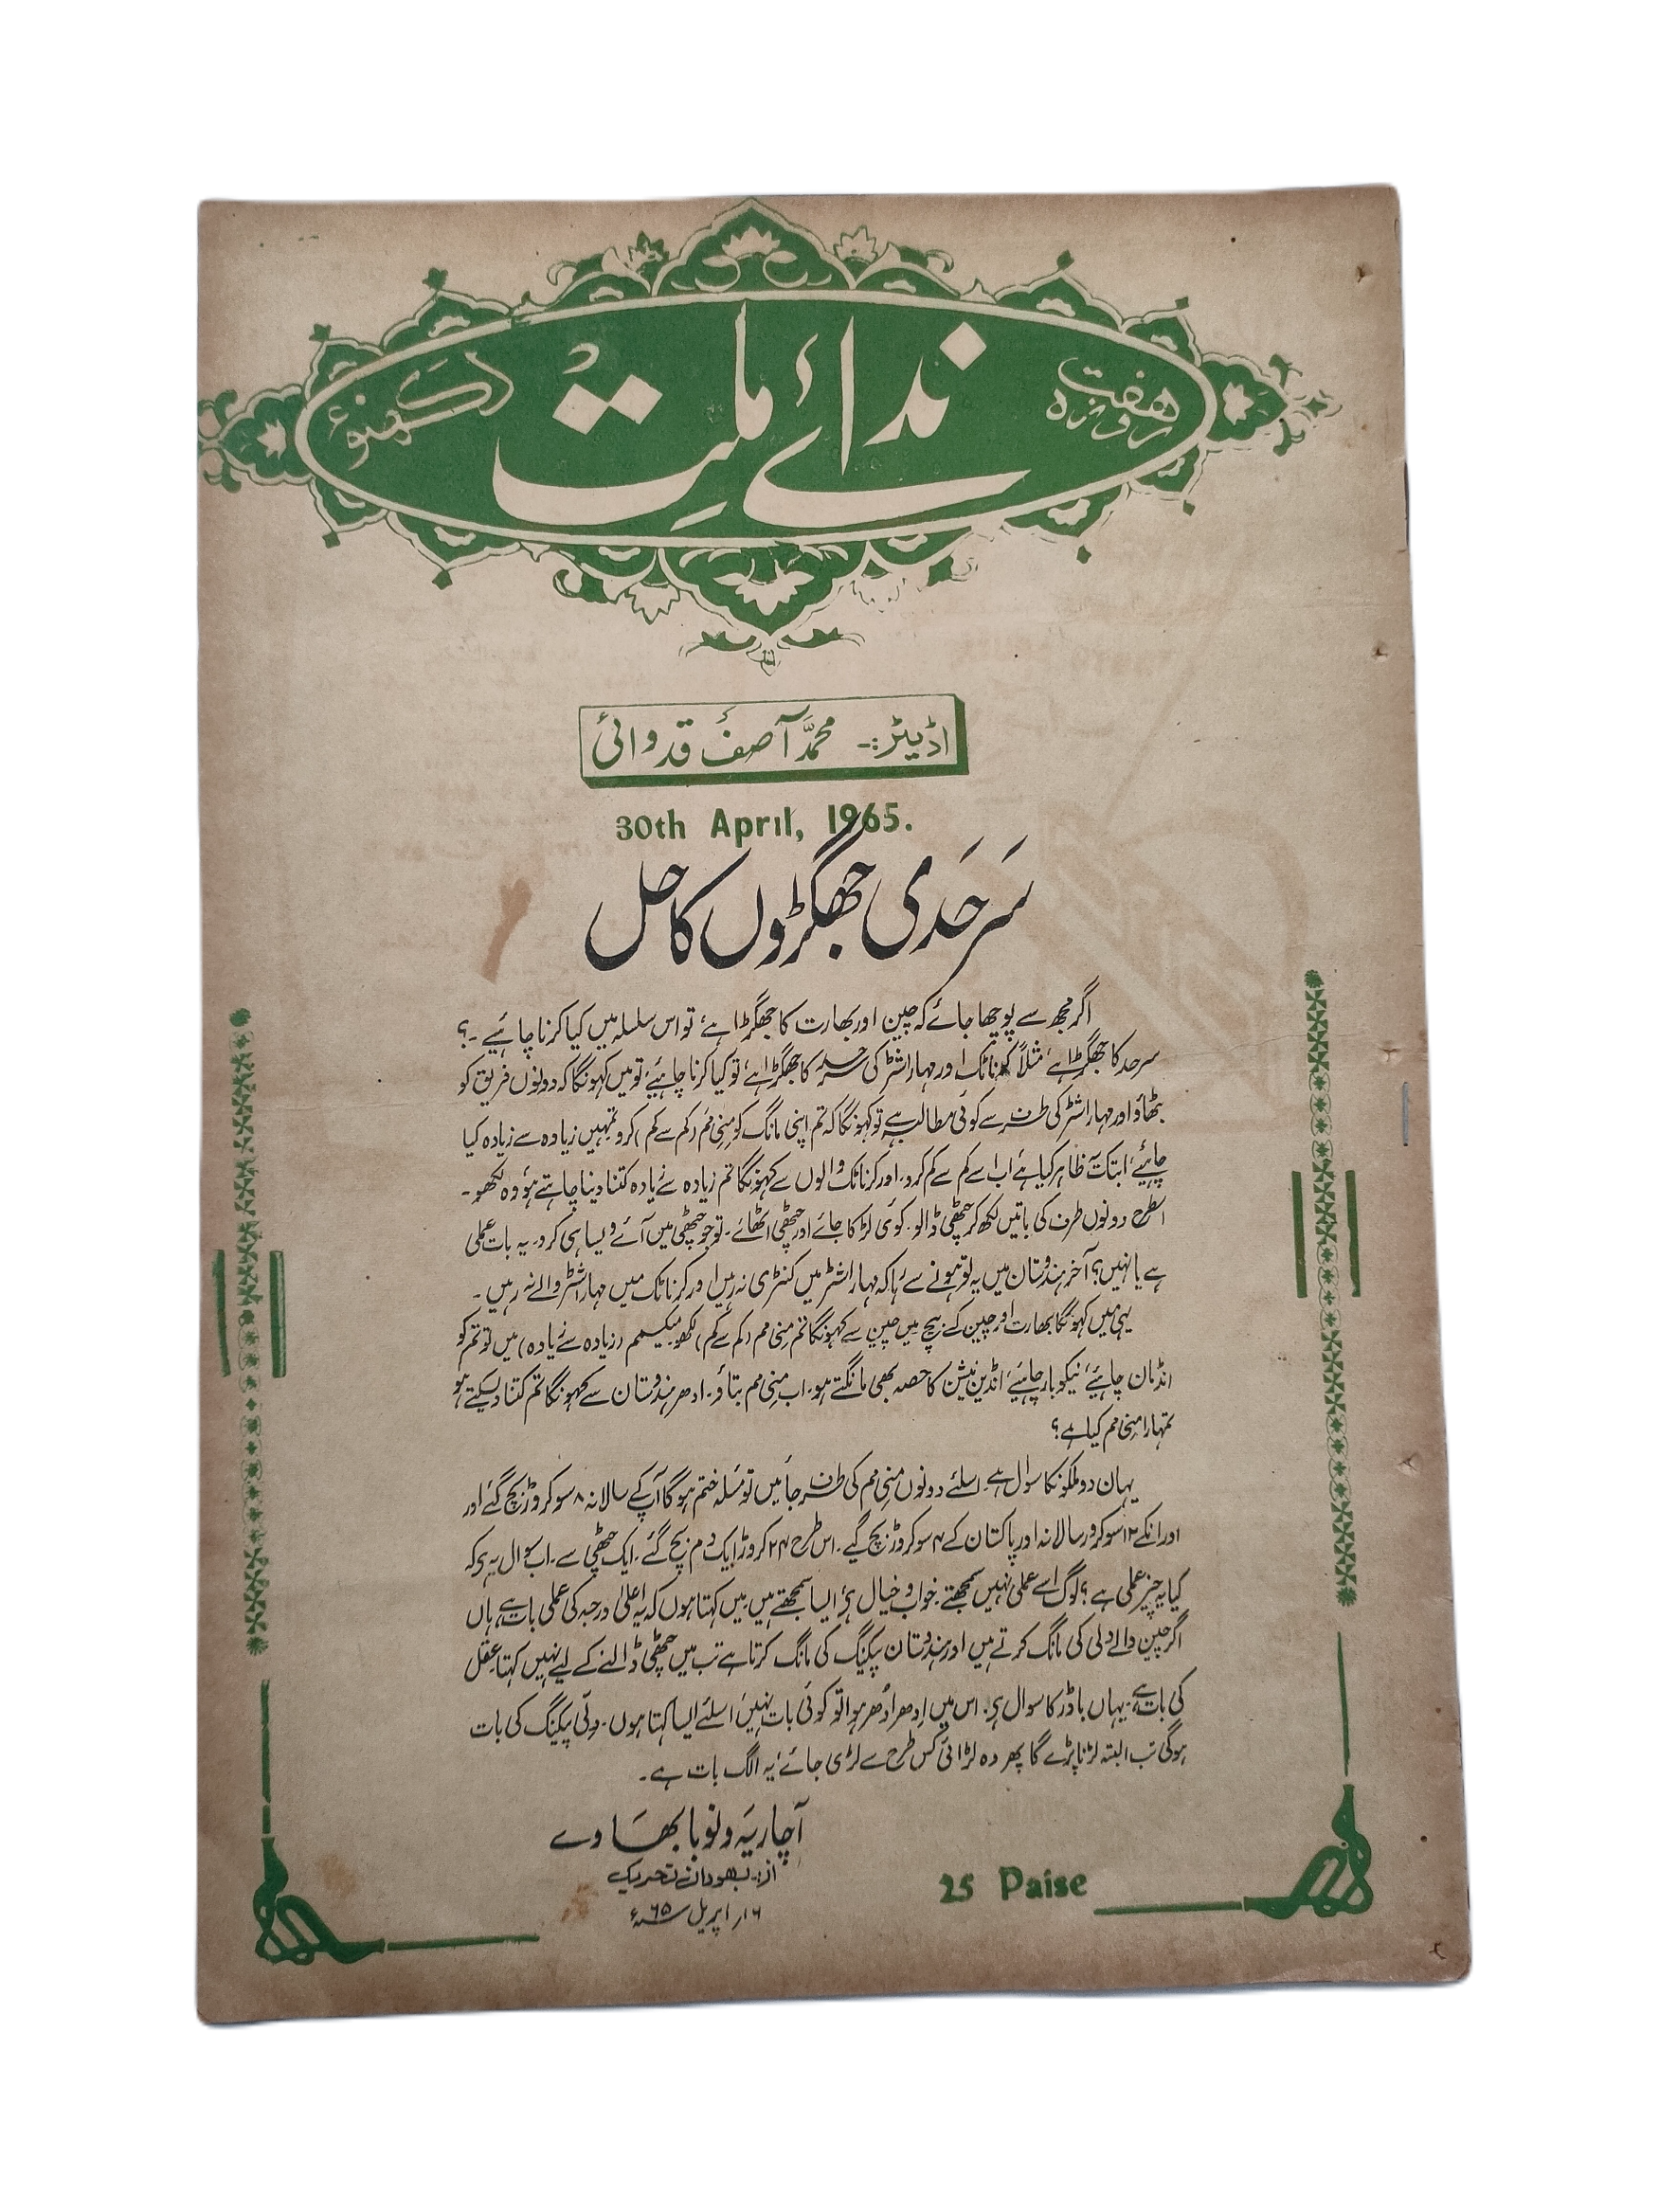 هفت روزہ
ندائے ملت
لکھنؤ
اڈیٹر:- محمد آصف قدوائی
30th April, 1965.
سرحدی جھگڑوں کا حل
اگر مجھ سے پوچھا جائے کہ چین اور بھارت کا جھگڑا ہے، تو اس سلسلہ میں کیا کرنا چاہئیے ۔؟
سرحد کا جھگڑا ہے، مثلاً کرناٹک اور مہاراشٹر کی سرحد کا جھگڑا ہے، تو کیا کرنا چاہئیے، تو میں کہونگا کہ دونوں فریق کو
بٹھاؤ اور مہاراشٹر کی طرف سے کوئی مطالبہ ہے تو کہونگا کہ تم اپنی مانگ کو منی مم (کم سے کم) کرو تمہیں زیادہ سے زیادہ کیا
چاہئیے، ابتک یہ ظاہر کیا ہے اب اسے کم سے کم کرو۔ اور کرناٹک والوں سے کہونگا تم زیادہ سے زیادہ کتنا دینا چاہتے ہو وہ لکھو۔
اسطرح دونوں طرف کی باتیں لکھ کر چٹھی ڈالو۔ کوئی لڑکا جائے اور چٹھی اٹھائے۔ تو جو چٹھی میں آئے ویسا ہی کرو۔ یہ بات عملی
ہے یا نہیں؟ آخر ہندوستان میں یہ تو ہونے سے رہا کہ مہاراشٹر میں کنٹری نہ رہیں اور کرناٹک میں مہاراشٹر والے نہ رہیں ۔
یہی میں کہونگا بھارت اور چین کے بیچ میں چین سے کہونگا تم منی مم (کم سے کم) لکھو میکسیمم (زیادہ سے زیادہ) میں تو تم کو
انڈمان چاہئیے، نیکوبار چاہئیے، انڈین نیشن کا حصہ بھی مانگتے ہو۔ اب منی مم بتاؤ۔ ادھر ہندوستان سے کہونگا تم کتنا دیسکتے ہو
تمہارا منی مم کیا ہے؟
یہاں دو ملکونکا سوال ہے۔ اسلئے دونوں منی مم کی طرف جائیں تو مسئلہ ختم ہو گا آپ کے سالانہ ۸ سو کروڑ بچ گئے اور
اور انکے ۱۲ سو کرور سالانہ اور پاکستان کے ۴ سو کروڑ بچ گیے۔ اس طرح ۲۴ کروڑ ایک دم بچ گئے۔ ایک چٹھی سے۔ اب سوال یہ ہے کہ
کیا یہ چیز عملی ہے؟ لوگ اسے عملی نہیں سمجھتے۔ خواب و خیال ہے ایسا سمجھتے ہیں۔ میں کہتا ہوں کہ یہ اعلیٰ درجہ کی عملی بات ہے، ہاں
اگر چین والے دلی کی مانگ کرتے ہیں اور ہندوستان پیکنگ کی مانگ کرتا ہے تب میں چٹھی ڈالنے کے لیے نہیں کہتا عقل
کی بات ہے، یہاں باڈر کا سوال ہے۔ اس میں اِدھر اُدھر ہوا تو کوئی بات نہیں، اسلئے ایسا کہتا ہوں۔ دلی پیکنگ کی بات
ہوگی تب البتہ لڑنا پڑے گا پھر وہ لڑائی کس طرح سے لڑی جائے، یہ الگ بات ہے ۔
آچاریہ ونوبا بھاوے
از:۔ بھودان تحریک
۱۶ر اپریل ۶۵ء
25 Paise